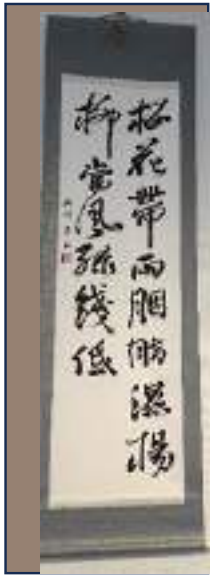 桃花帶雨胭脂濕楊
柳當風綠綫低